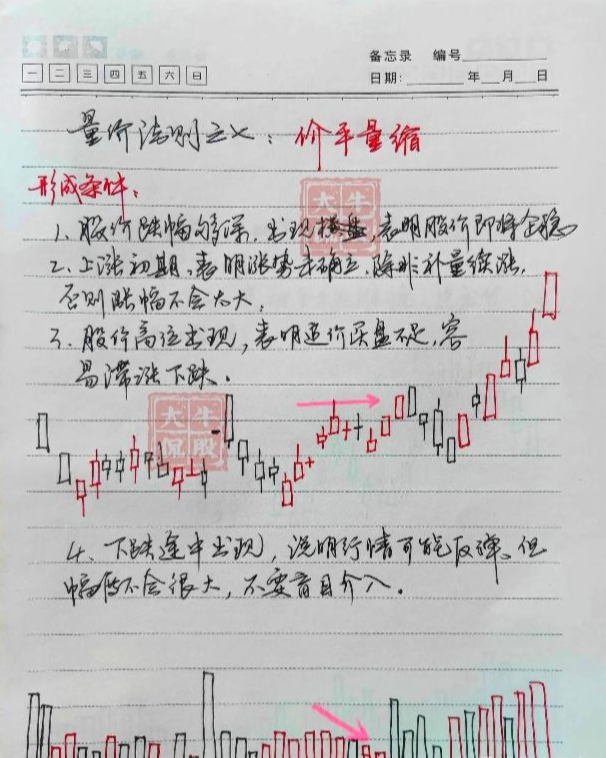 备忘录 编号
一 二 三 四 五 六 日
日期: 年 月 日
量价法则之七: 价平量缩
形成条件:
1、股价跌幅够深,出现横盘,表明股价即将企稳
2、上涨初期,表明涨势未确立,除非补量续涨,
否则涨幅不会太大;
3、股价高位出现,表明追价买盘不足,容
易滞涨下跌.
大牛
侃股
大牛
侃股
4、下跌途中出现,说明行情可能反弹、但
幅度不会很大,不要盲目介入.